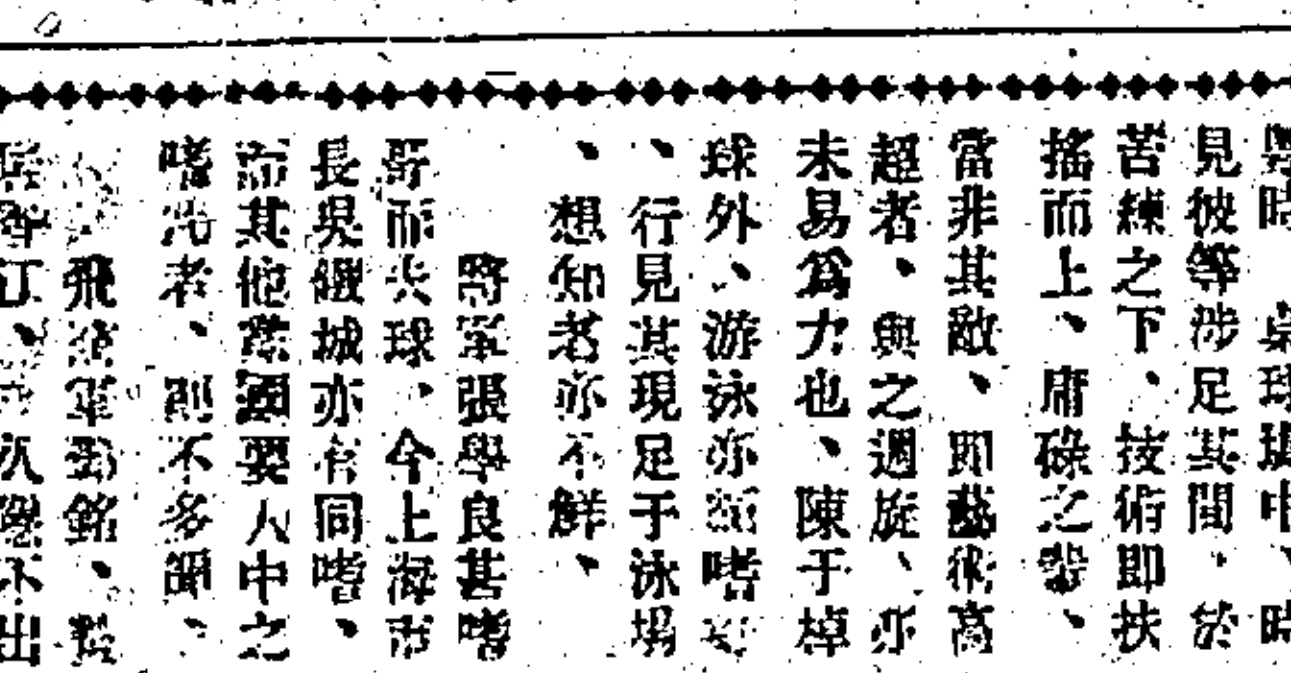 時　桌球場中、時
見彼等涉足其間、於
苦練之下、技術即扶
搖而上、庸碌之輩、
當非其敵、即藝術高
超者、與之週旋、亦
未易爲力也、陳于棹
球外、游泳亦頗嗜好
、行見其現足于泳場
、想知者亦不鮮、
將軍張學良甚嗜
哥而夫球、今上海市
長吳鐵城亦有同嗜、
而其他黨國要人中之
嗜沽者、則不多覯、
飛將軍劉銘、
江、不出